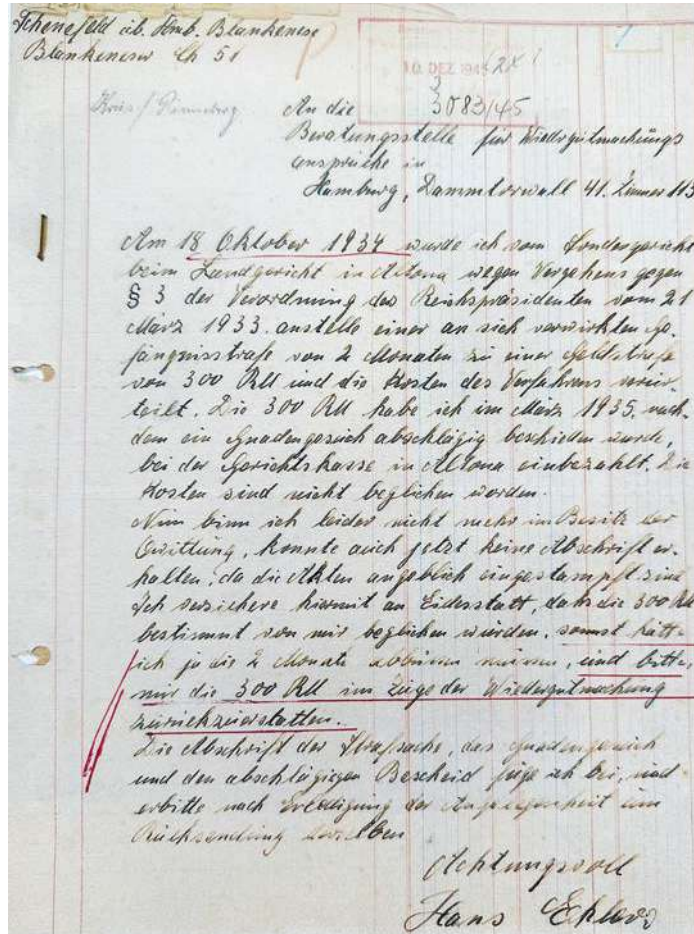 Schenefeld üb. Hmb. Blankenese
Blankeneser Ch 51
10. DEZ 1945 (2X)
3
3083/45
Kreis / Pinneberg
An die
Beratungsstelle für Wiedergutmachungs
ansprüche in
Hamburg, Dammtorwall 41. Zimmer 113
Am 18 Oktober 1934 wurde ich vom Sondergericht
beim Landgericht in Altona wegen Vergehens gegen
§ 3 der Verordnung des Reichspräsidenten vom 21
März 1933. anstelle einer an sich verwirkten Ge-
fängnisstrafe von 2 Monaten zu einer Geldstrafe
von 300 RM und die Kosten des Verfahrens verur-
teilt. Die 300 RM habe ich im März 1935, nach-
dem ein Gnadengesuch abschlägig beschieden wurde,
bei der Gerichtskasse in Altona einbezahlt. Die
Kosten sind nicht beglichen worden.
Nun binn ich leider nicht mehr im Besitz der
Quittung, konnte auch jetzt keine Abschrift er-
halten, da die Akten angeblich eingestampft sind
Ich versichere hiermit an Eidesstatt, dahs die 300 RM
bestimmt von mir beglichen wurden, sonnst hätte
ich ja die 2 Monate abbüssen müssen, und bitte,
mir die 300 RM im Zuge der Wiedergutmachung
zurückzuerstatten.
Die Abschrift der Strafsache, das Gnadengesuch
und den abschlägigen Bescheid füge ich bei, und
erbitte nach Erledigung der Angelegenheit um
Rücksendung derselben
Achtungsvoll
Hans